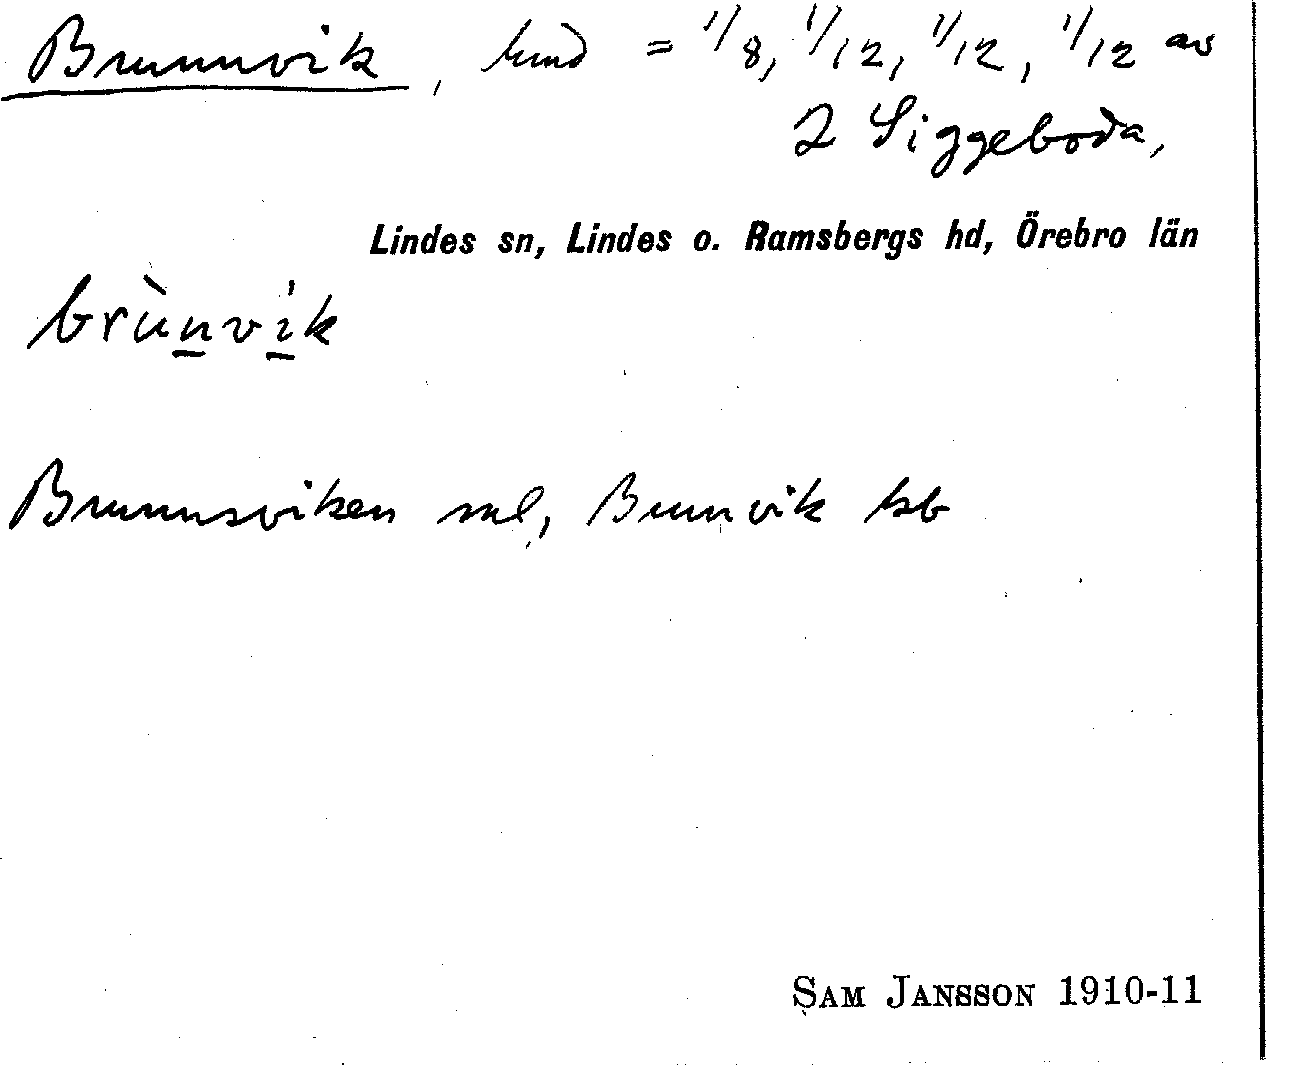 Brunnvik, hmd = 1/8, 1/12, 1/12, 1/12 av
2 Siggeboda,
Lindes sn, Lindes o. Ramsbergs hd, Örebro län
brùnvi̇k
Brunnsviken sml, Brunvik kb
SAM JANSSON 1910-11